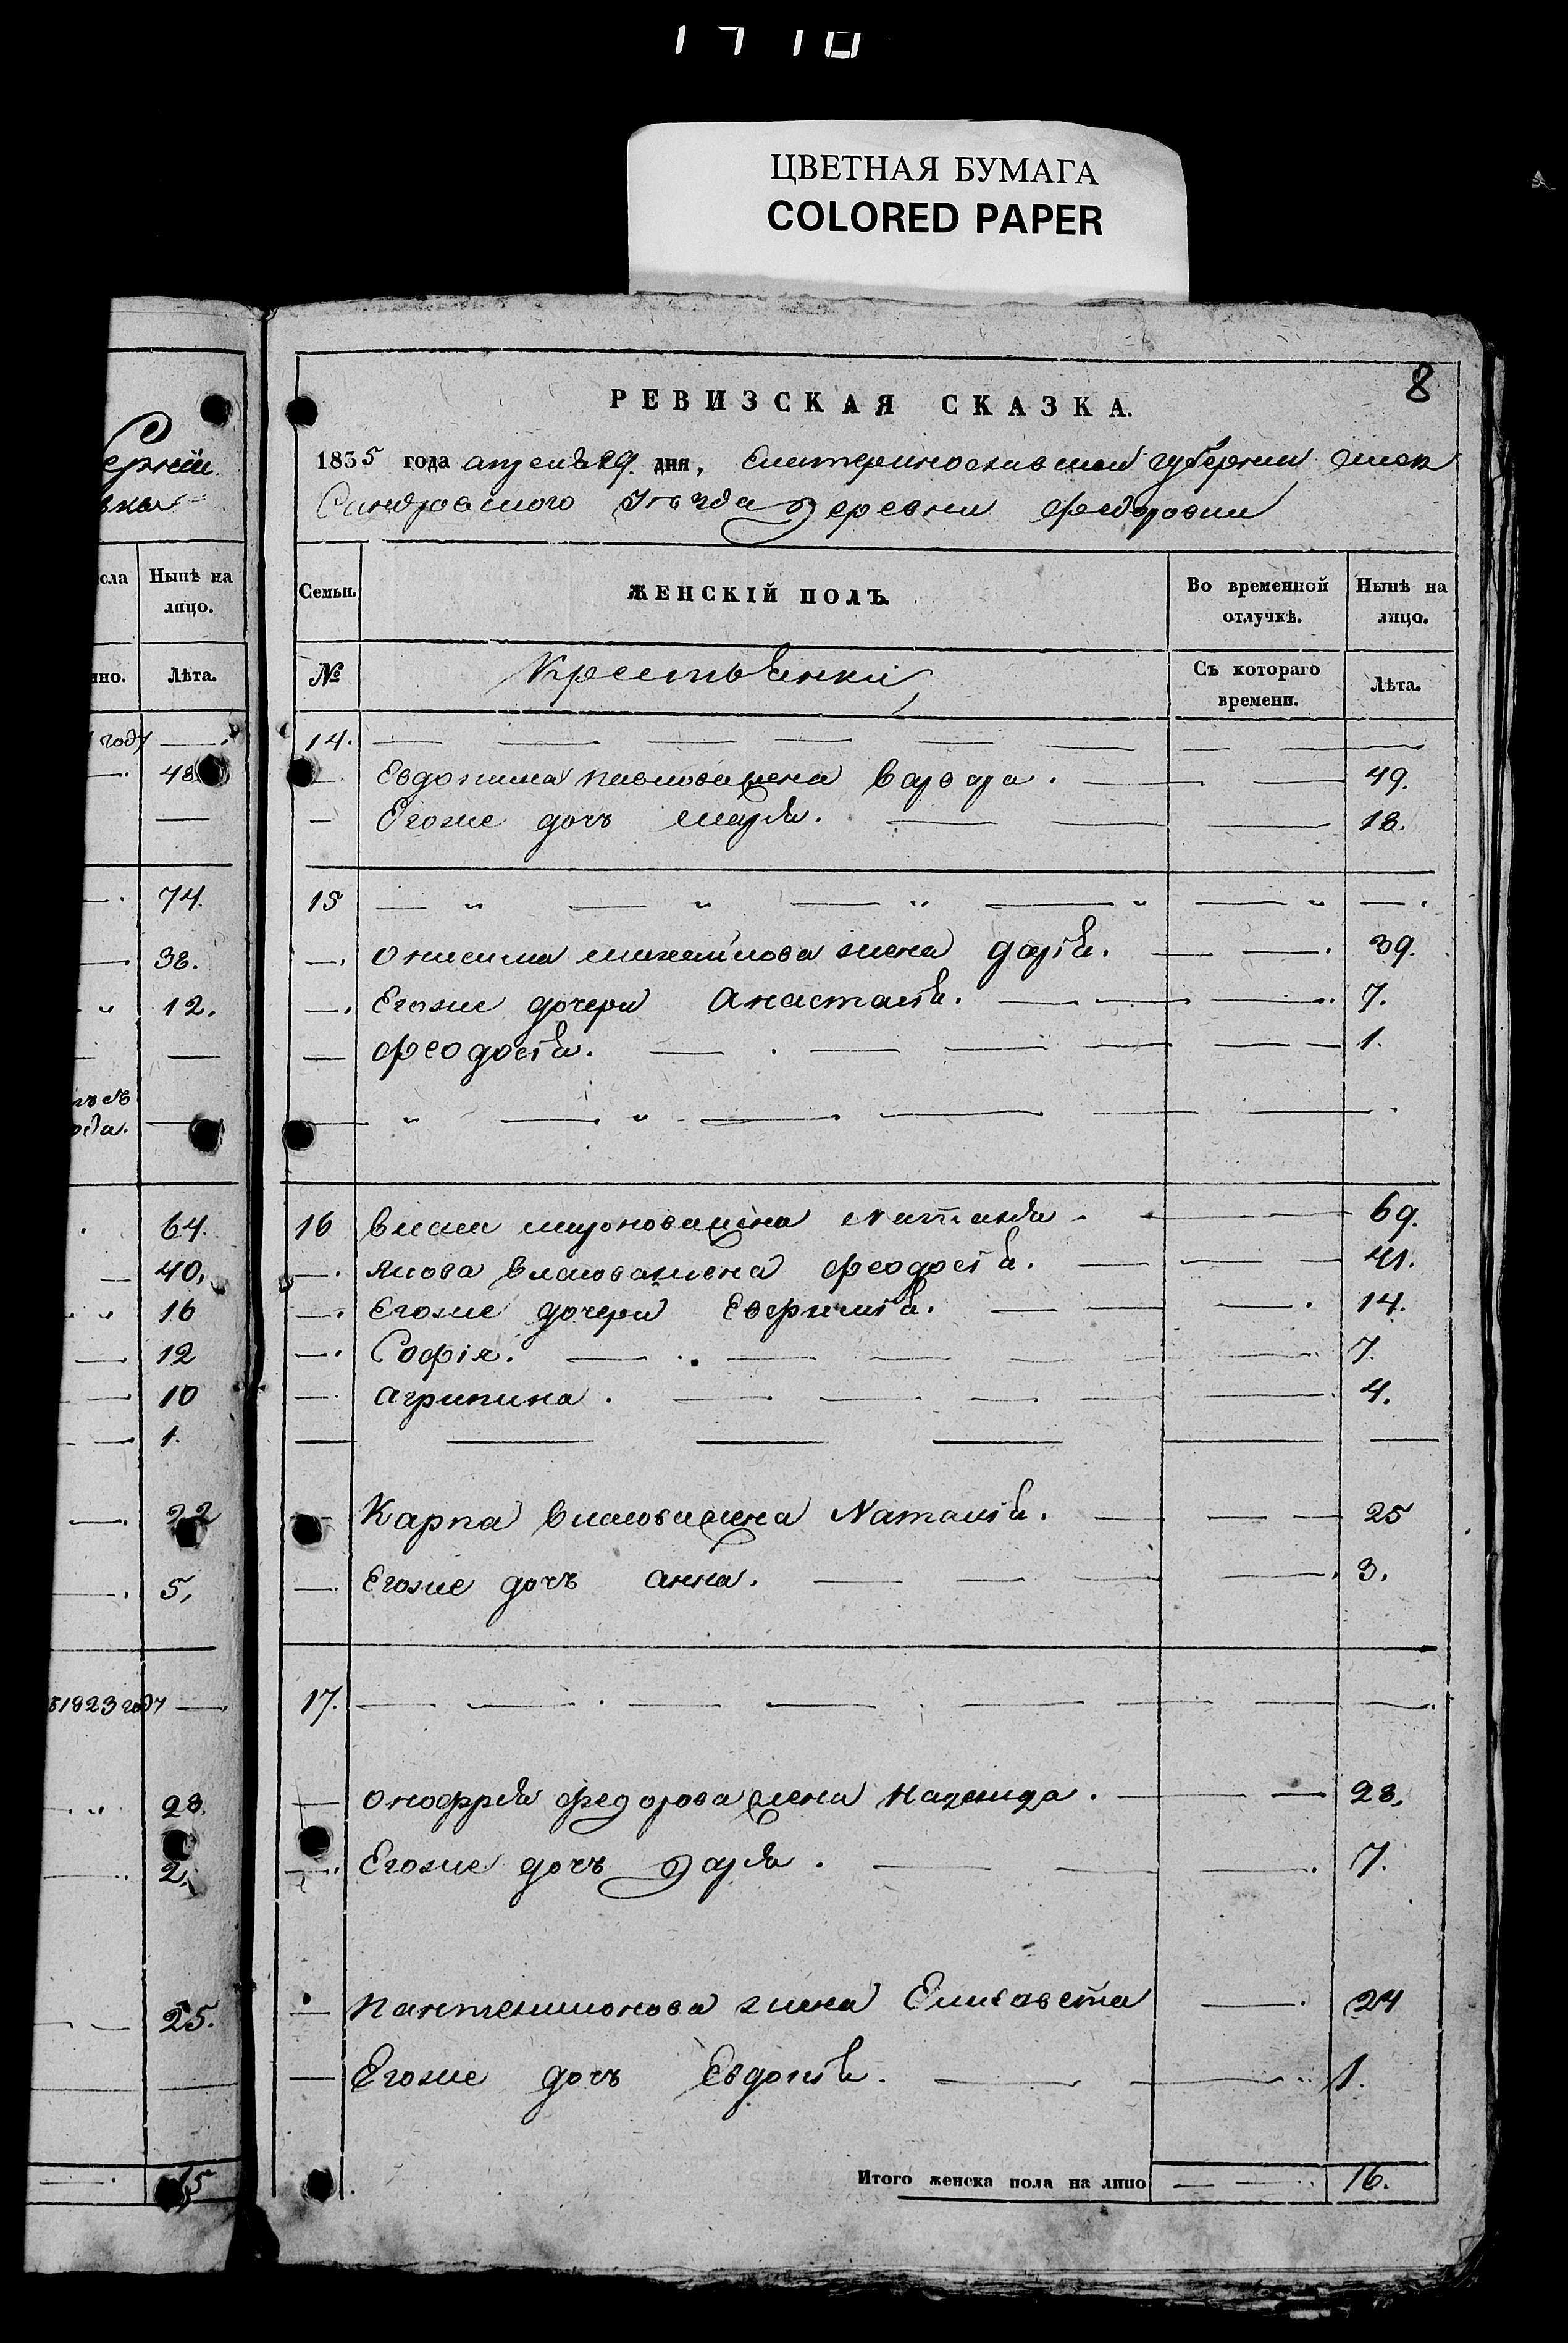 ЦВЕТНАЯ БУМАГА
COLORED PAPER
8
РЕВИЗСКАЯ СКАЗКА.
1835 года апреля 29. дня, Екатеринославской губернии Алек
Сандровского Уезда деревни Федоровки
сла
Нынѣ на лицо.
нно.
Лѣта.
году
48
74.
38.
12.
64.
40.
16
12
10
1.
22
5.
1823 году
28.
2.
25.
Семьи.
ЖЕНСКІЙ ПОЛЪ.
Во временной отлучкѣ.
Нынѣ на лицо.
№
Крестьянки
Съ котораго времени.
Лѣта.
14.
Евдокима павловажена варвара. 49.
Егоже дочь марья. 18.
15
Онисима михайлова жена дарія. 39.
Егоже дочери Анастасія. 7.
Феодосія. 1.
16 власа мироноважена Наталія 69.
Якова власоважена феодосія. 41.
Егоже дочери Евфимія. 14.
Софія. 7.
агрипина. 4.
Карпа власоважена Наталія. 25
Егоже дочь анна. 3.
17.
Онофрія федорова жена надежда. 28.
Егоже дочь дарья. 7.
пантелимонова жена Елисавета 24
Егоже дочь Евдокія. 1.
Итого женска пола на лицо 16.